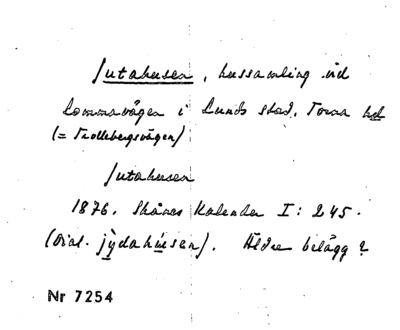 Jutahusen, hussamling vid
Lommavägen i Lunds stad, Torna hd
(= Trollebergsvägen)
Jutahusen
1876. Skånes Kalender I: 245.
(Dial. jỳdahúsen). Äldre belägg?
Nr 7254